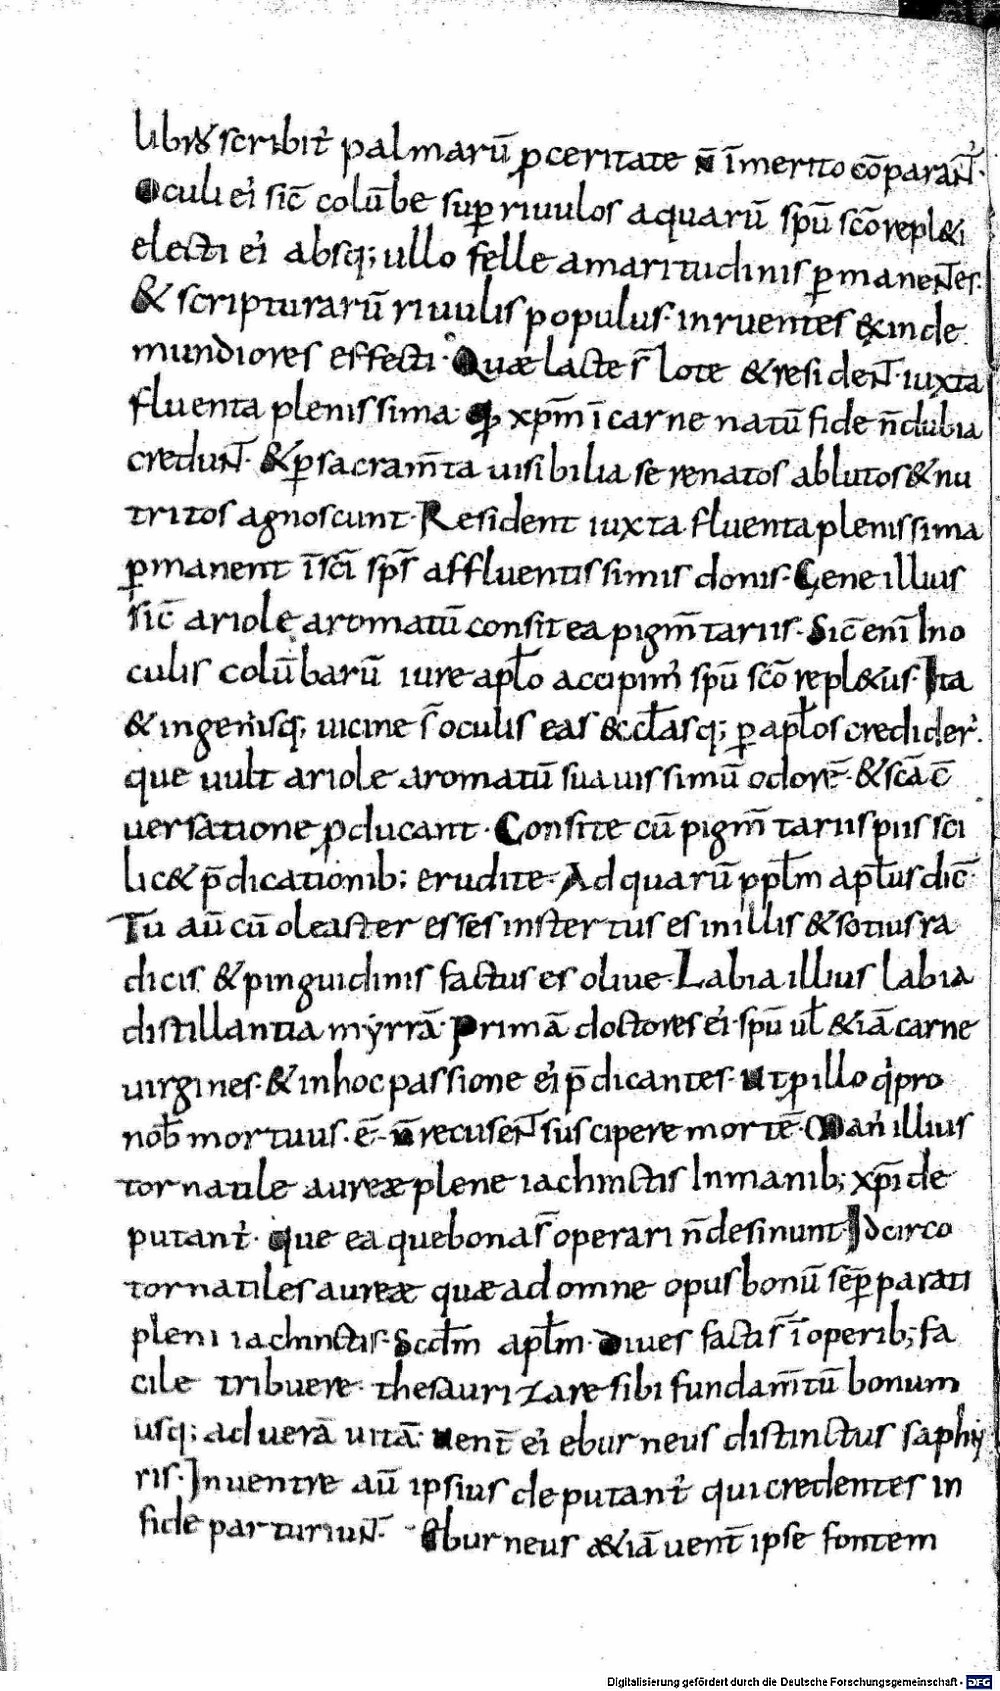 libroꝝ scribit᷑ palmarū ꝓceritate n̄ īmerito cōparaNT᷑.
Oculi ei᷑ sic̄ colūbe suꝑ riuulos aquarū sp̄u sc̄o repl&i
electi ei᷑ absq; ullo felle amaritudinis ꝑmaneNTes.
& scripturarū riuulis populus inruentes exinde
mundiores effecti. Quæ lacte s̄ lote & resideNT. iuxta
fluenta plenissima. qꝫ xp̄m ī carne natū fide n̄ dubia
creduNT. & ꝑ sacram̄ta uisibilia se renatos ablutos & nu
tritos agnoscunt. Resident iuxta fluenta plenissima
ꝑmanent ī sc̄i sp̄s affluentissimis donis. Gene illius
sic̄ ariole aromatū consitea pigm̄tariis. Sic̄ eni᷑ In o
culis colūbarū iure apl̄o accipim᷑ sp̄u sc̄o repl&us. Ita
& in genis q; uicine s̄ oculis eas eccl̄as q; ꝑ apl̄os credider᷑.
que uult ariole aromatū suauissimū odorē. & scā c̄
uersatione ꝓducant. Consite cū pigm̄tariis piis sci
lic& p̄dicationib; erudite. Ad quarū ppl̄m apl̄us dic̄
Tu aū cū oleaster esses insertus es in illis & sotius ra
dicis & pinguidinis factus es oliue. Labia illius labia
distillantia myrrā. Primā doctores ei᷑ spū ul̄ &iā carne
uirgines. & in hoc passione ei᷑ p̄dicantes. Ut ꝓ illo q᷑ pro
nob̄ mortuus. ē. n̄ recuseNT suscipere mortē. Man᷑ illius
tornatile aureæ plene iachinctis In manib; xp̄i de
putant᷑. que ea que bona s̄ operari n̄ desinunt. Idcirco
tornatiles aureæ quæ ad omne opus bonū sēp parati
pleni iachinctis. Scdm̄ apl̄m. Diues factis ī operib; fa
cile tribuere. thesaurizare sibi fundam̄tū bonum
usq; ad uerā uitā. Uent̄ ei᷑ eburneus distinctus saphy
ris. In uentre aū ipsius deputant᷑ qui credentes in
fide parturiuNT. Eburneus &iā uent̄ ipse fontem
Digitalisierung gefördert durch die Deutsche Forschungsgemeinschaft - DFG